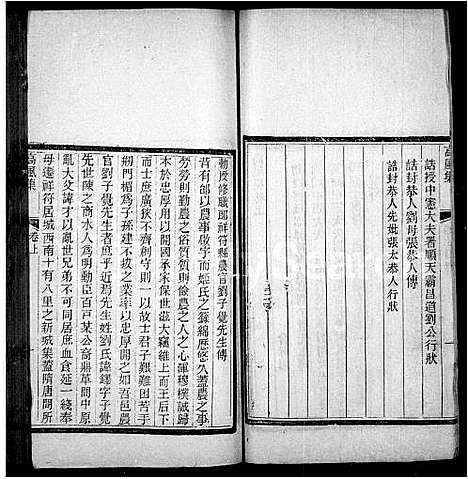 誥授中憲大夫署順天霸昌道劉公行狀
誥封恭人劉母張恭人傳
誥封恭人先妣張太恭人行狀
高風集
一
敕授修職郎祥符縣農官劉子覺先生傳
昔有邰以農事啟宇而姬氏之籙綿歷悠久蓋農之事
勞勞則勤農之俗質質則儉農之人心渾穆樸誠歸
本於忠厚用以開國承家保世滋大竊維上而王后下
而士庶廣狹不齊創守則一以故士君子艱難困苦于
飢門楣為子孫建不拔之業率以忠厚開之如吾邑農
官劉子覺先生者庶乎近焉先生姓劉氏諱鐸字子覺
先世陳之商水人為明勳臣百戸某公裔鼎革間中原
亂大父諱才以亂世兄弟不可同居庶血食延一綫奉
母遷祥符居城西南十有八里之新城集蓋隋唐間所
高風集
卷上